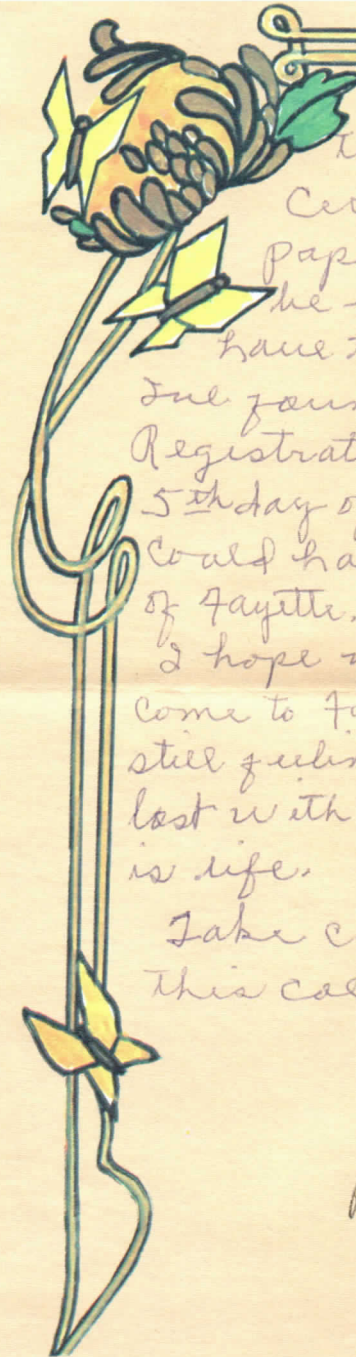 Cer
pape
be
have
I've foun
Registrat
5th day o
Could ha
of Fayette.
I hope
come to Fa
still feelin
lost with
is life.
Take c
this col